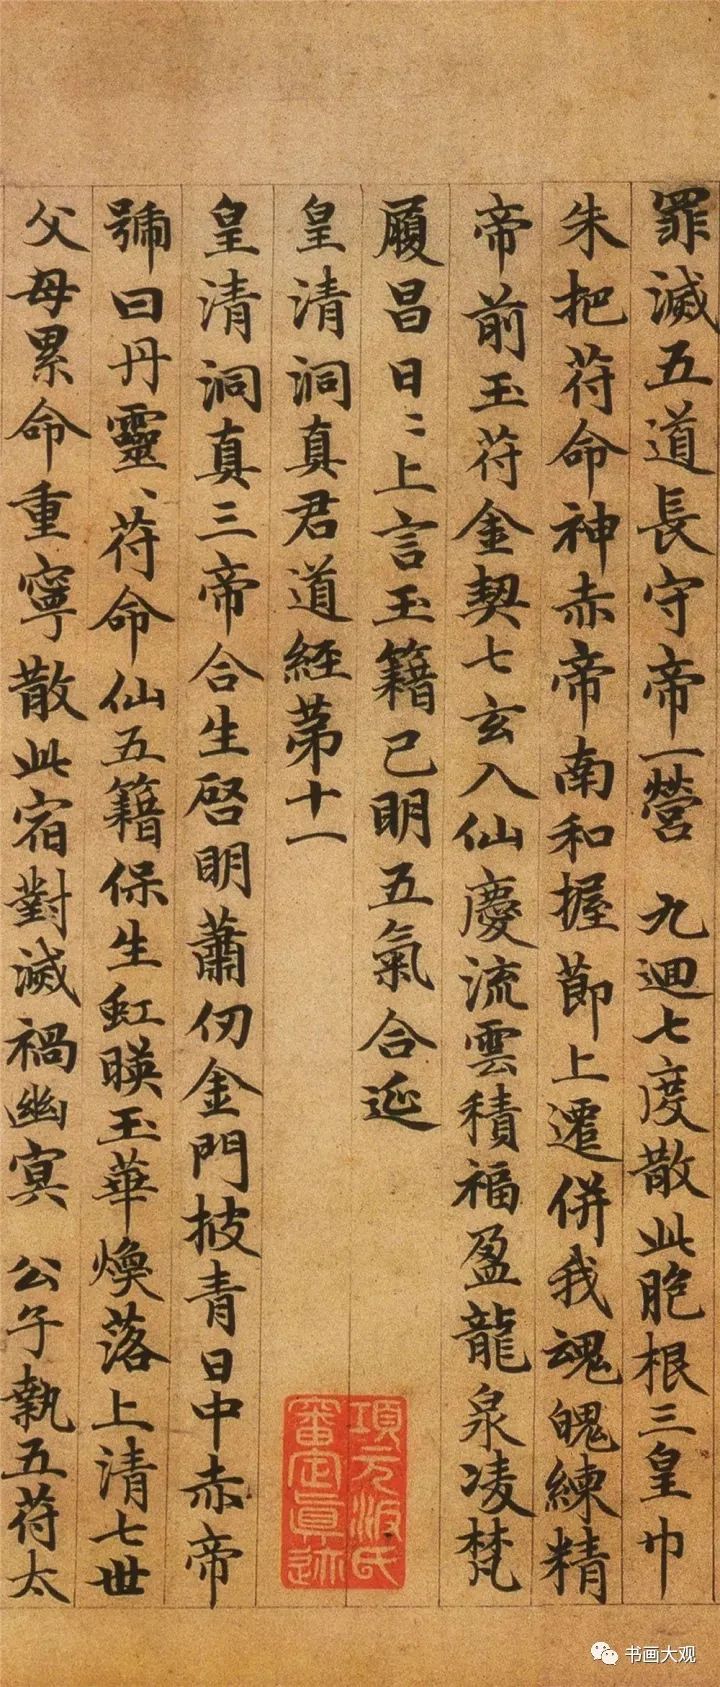 罪滅五道長守帝一營 九迴七度散此胞根三皇巾
朱把苻命神赤帝南和握節上遷併我魂魄練精
帝前玉苻金契七玄入仙慶流雲積福盈龍泉凌梵
履昌日〻上言玉籍已明五氣合延
皇清洞真君道經第十一
皇清洞真三帝合生啓明蕭仞金門披青日中赤帝
號曰丹靈〻苻命仙五籍保生虹暎玉華煥落上清七世
父母累命重寧散此宿對滅禍幽冥 公子執五苻太
項元汴氏
審定真迹
书画大观